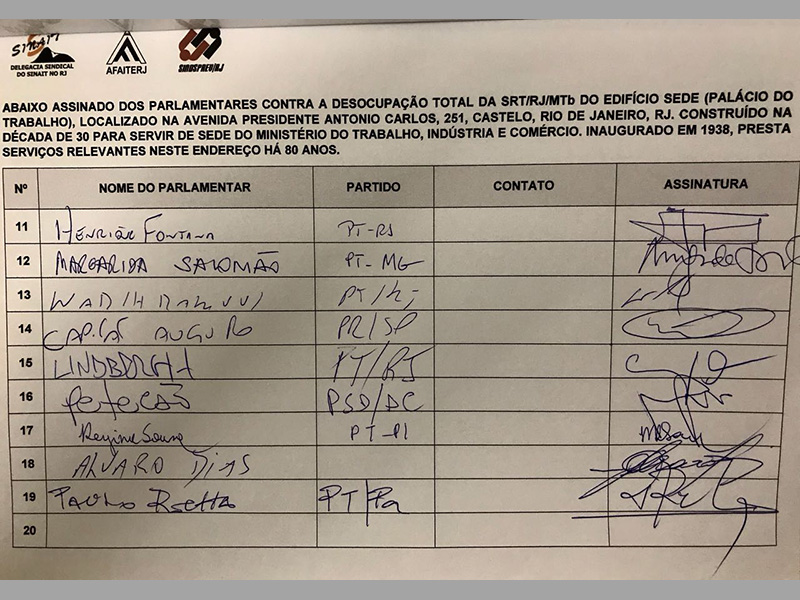 SINAIT
DELEGACIA SINDICAL
DO SINAIT NO RJ
AFAITERJ
SINDSPREV/RJ
ABAIXO ASSINADO DOS PARLAMENTARES CONTRA A DESOCUPAÇÃO TOTAL DA SRT/RJ/MTb DO EDIFÍCIO SEDE (PALÁCIO DO
TRABALHO), LOCALIZADO NA AVENIDA PRESIDENTE ANTONIO CARLOS, 251, CASTELO, RIO DE JANEIRO, RJ. CONSTRUÍDO NA
DÉCADA DE 30 PARA SERVIR DE SEDE DO MINISTÉRIO DO TRABALHO, INDÚSTRIA E COMÉRCIO. INAUGURADO EM 1938, PRESTA
SERVIÇOS RELEVANTES NESTE ENDEREÇO HÁ 80 ANOS.
Nº NOME DO PARLAMENTAR PARTIDO CONTATO ASSINATURA
11 HENRIQUE FONTANA PT-RS
12 MARGARIDA SALOMÃO PT-MG
13 WADIH PT/RJ
14 AUGUSTO PR/SP
15 LINDBERGH PT/RJ
16 PETECÃO PSD/AC
17 Regina Sousa PT-PI
18 ALVARO DIAS
19 PAULO ROCHA PT/Pa
20